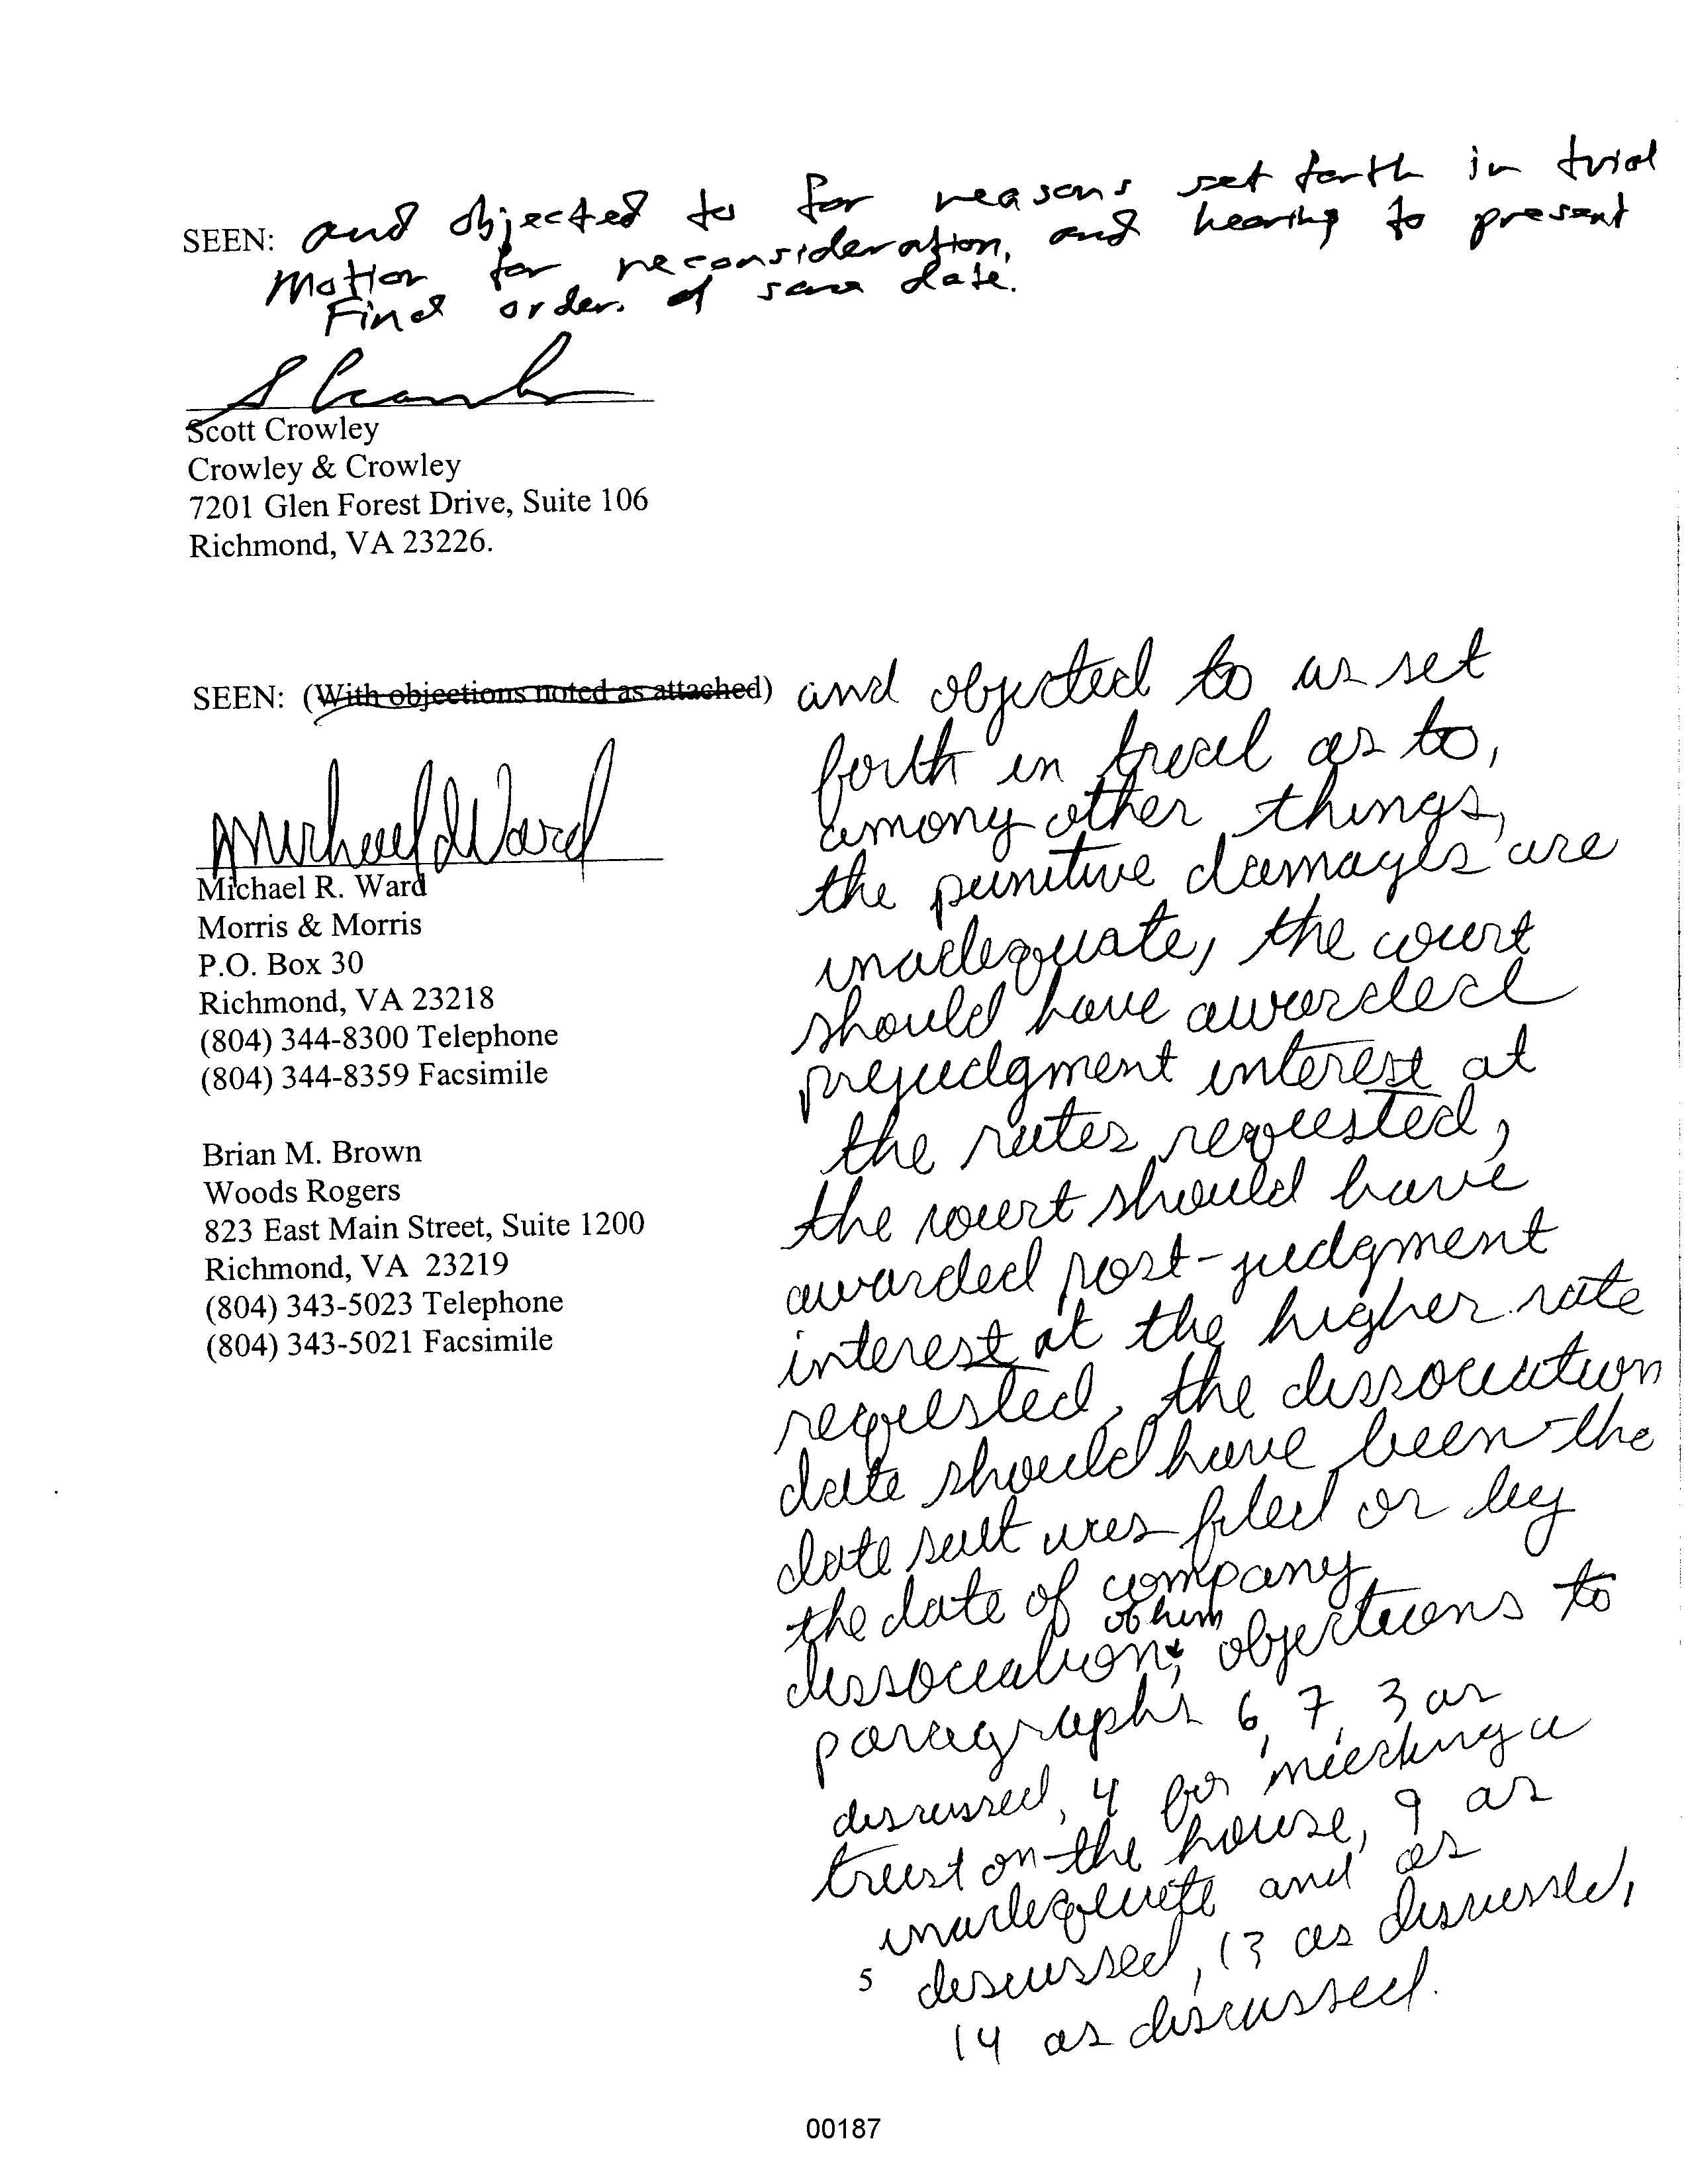 SEEN: and objected to for reasons set forth in trial
Motion for reconsideration, and hearing to present
Final order. of same date.
Scott Crowley
Crowley & Crowley
7201 Glen Forest Drive, Suite 106
Richmond, VA 23226.
SEEN: (With objections noted as attached) and objected to as set
forth in trial as to,
among other things,
the punitive damages are
inadequate, the court
should have awarded
prejudgment interest at
the rates requested,
the court should have
awarded post-judgment
interest at the higher rate
requested, the dissociation
date should have been the
date suit was filed or by
the date of company
dissociation, of him objections to
paragraphs 6, 7, 3 as
discussed, 4 for a
trust on the house, 9 as
inadequate and as
discussed, 13 as discussed,
14 as discussed.
Michael R. Ward
Michael R. Ward
Morris & Morris
P.O. Box 30
Richmond, VA 23218
(804) 344-8300 Telephone
(804) 344-8359 Facsimile
Brian M. Brown
Woods Rogers
823 East Main Street, Suite 1200
Richmond, VA 23219
(804) 343-5023 Telephone
(804) 343-5021 Facsimile
5
00187